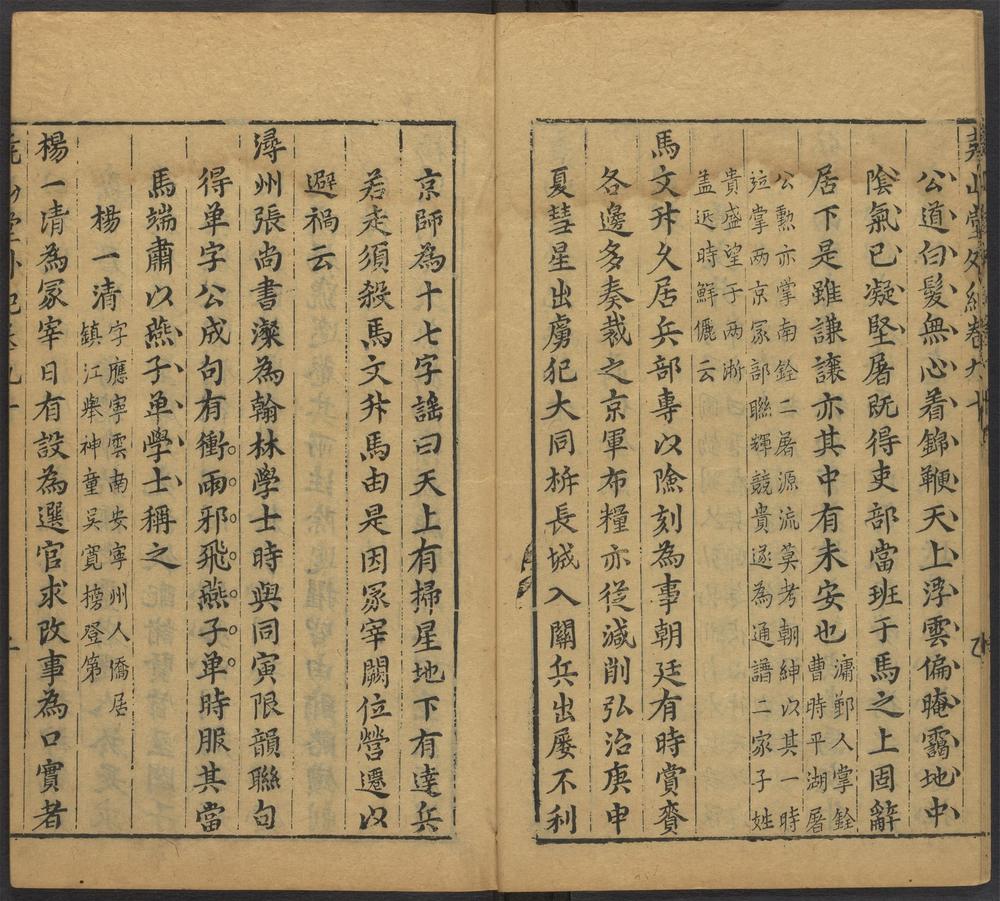 堯山堂外紀卷九十
公道白髮無心着錦鞭天上浮雲偏晻靄地中
陰氣已凝堅屠既得吏部當班于馬之上固辭
居下是雖謙讓亦其中有未安也
滽鄞人掌銓
曹時平湖屠
公勳亦掌南銓二屠源流莫考朝紳以其一時
竝掌两京冢部聯輝競貴遂為通譜二家子姓
貴盛望于两淅
盖近時鮮儷云
馬文升久居兵部專以險刻為事朝廷有時賞賚
各邊多奏裁之京軍布糧亦從減削弘治庚申
夏彗星出虜犯大同拆長城入關兵出屡不利
京師為十七字謡曰天上有掃星地下有達兵
若走須殺馬文升馬由是因冢宰闕位營遷以
避禍云
潯州張尚書濚為翰林學士時與同寅限韻聯句
得单字公成句有衝雨邪飛燕子单時服其當
馬端肅以燕子单學士稱之
楊一清
字應寧雲南安寧州人僑居
鎮江舉神童吴寛榜登第
楊一清為冢宰日有設為選官求改事為口實者